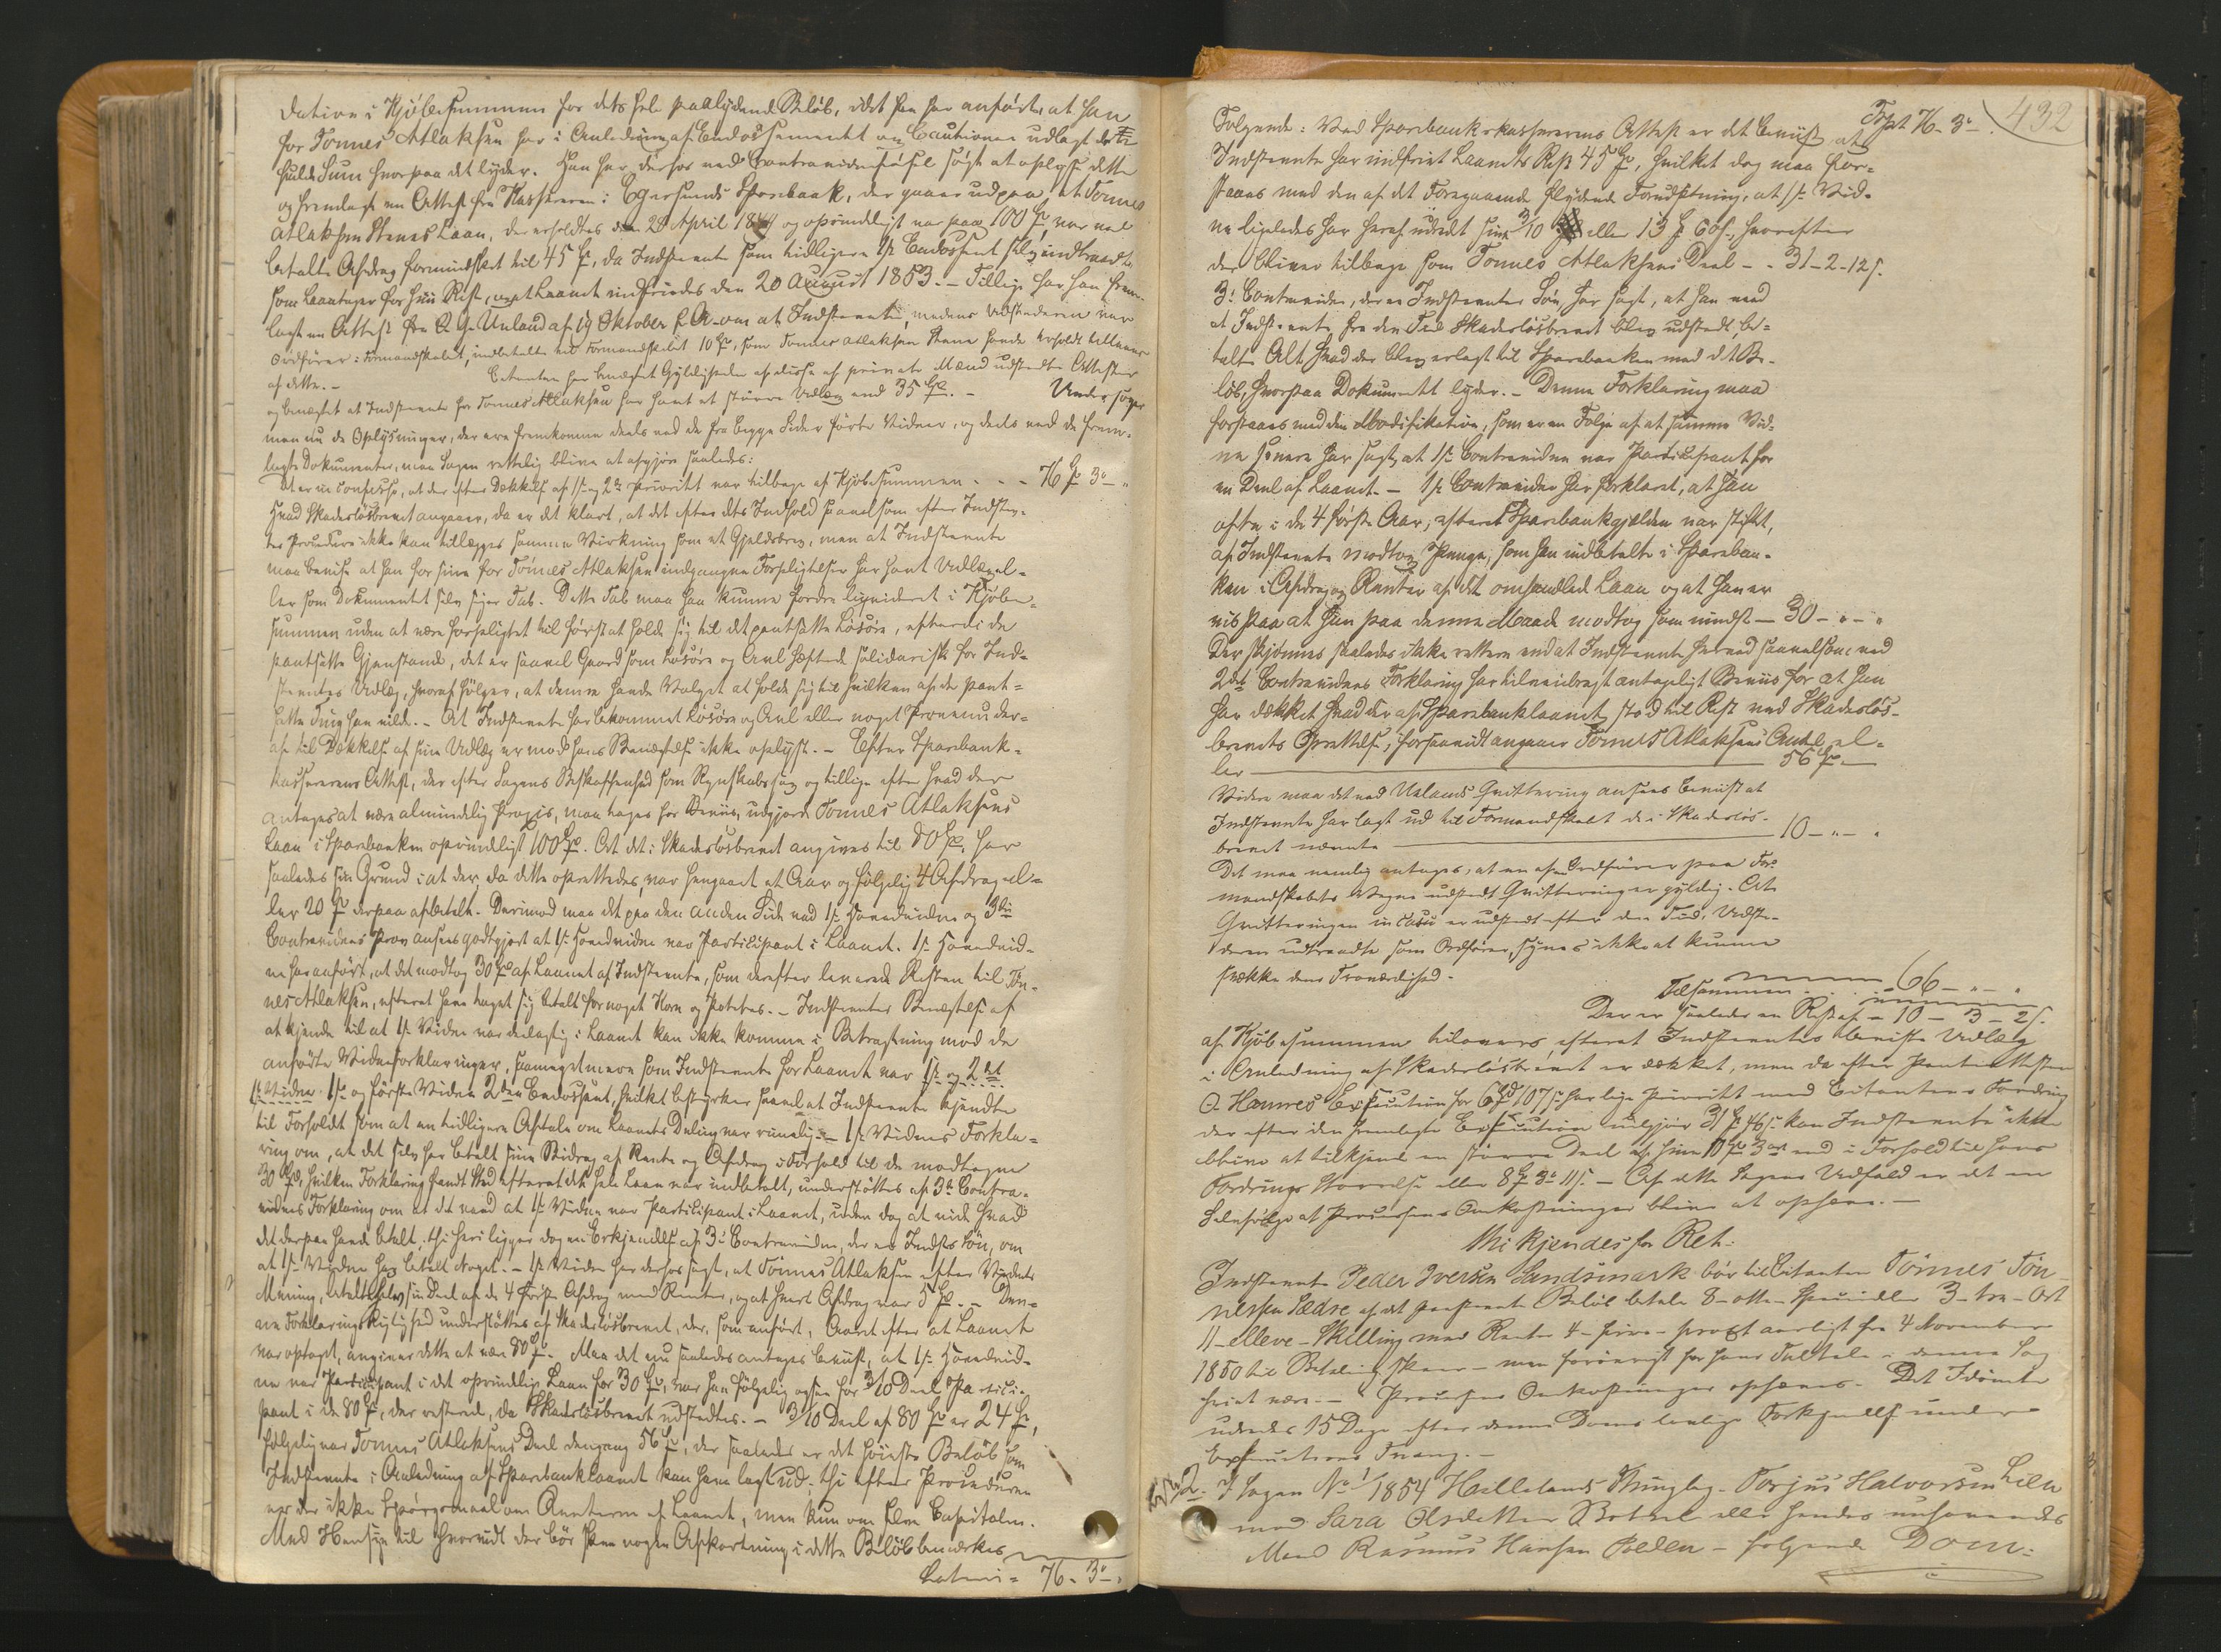 dation i Kjöbesummen for dets hele paalydende Beløb, idet han har anført, at han
for Tönnes Atlaksen har i Anledning af Endossement og Cautioner udlagt den
fulde Sum hvorpaa det lyder. Han har derhos ved Contravidneførsel søgt at oplyse dette
og fremlagt en Attest fra Kassereren i Egersunds Sparebank, der gaaer ud paa, at Tönnes
Atlaksen Stenes Laan, der erholdtes den 28 April 1849 og oprindeligt var paa 100 Spd, var ved
betalte Afdrag formindsket til 45 Spd, da Indstevnte som tidligere 1ste Endossent selv indtraadte
som Laantager for sin Rest, og at Laanet indfriedes den 20 August 1853. – Tillige har han frem-
lagt en Attest fra A. G. Ueland af 19 Oktober f. A. om at Indstevnte, medens Udstederen var
Ordförer i Formandskabet, indbetalte til Formandskabet 10 Spd, som Tönnes Atlaksen Stene havde erholdt tillaans
af dette. – Citanten har benægtet Gyldigheden af disse af private Mænd udstedte Attester
og benægtet at Indstevnte for Tönnes Atlaksen har havt et større Udlæg end 35 Spd. – Undersøger
man nu de Oplysninger, der ere fremkomne deels ved de fra begge Sider førte Vidner, og deels ved de frem-
lagte Dokumenter, maa Sagen rettelig blive at afgjøre saaledes:
Det er in confesso, at der efter Dækkelse af 1ste og 2den Prioritet var tilbage af Kjöbesummen - - - 76 Spd 3 - "
Hvad Skadesløsbrevet angaaer, da er det klart, at det efter dets Indhold saavelsom efter Indstevn-
tes Procedure ikke kan tillægges samme Virkning som et Gjeldsbrev, men at Indstevnte
maa bevise at han for sine for Tönnes Atlaksen indgangne Forpligtelser har havt Udlæg el-
ler som Dokumentet selv siger Tab. Dette Tab maa han kunne fordre liqvideret i Kjöbe-
summen uden at være forpligtet til först at holde sig til det pantsatte Løsøre, efterdi de
pantsatte Gjenstande, det er saavel Gaard som Løsøre og Avl heftede solidarisk for Ind-
stevntes Udlæg, hvoraf følger, at denne havde Valget at holde sig til hvilken af de pant-
satte Ting han vilde. – At Indstevnte har bekommet Løsøre og Avl eller noget Provenu der-
af til Dækkelse af sine Udlæg er mod hans Benægtelse ikke oplyst. – Efter Sparebank-
kassererens Attest, der efter Sagens Beskaffenhed som Regnskabssag og tillige efter hvad der
antages at være almindelig Praxis, maa tages for Beviis, udgjorde Tönnes Atlaksens
Laan i Sparebanken oprindeligt 100 Spd. At det i Skadesløsbrevet angives til 80 Spd, har
saaledes sin Grund i at der, da dette oprettedes, var hengaaet et Aar og følgelig 4 Afdrag el-
ler 20 Spd derpaa afbetalt. Derimod maa det paa den anden Side ved 1ste Hovedvidne og 3die
Contravidnes Prov ansees godtgjort at 1ste Hovedvidne var Participant i Laanet. 1ste Hovedvid-
ne har anført, at det modtog 30 Spd af Laanet af Indstevnte, som derefter leverede Resten til Tön-
nes Atlaksen, efterat have taget sig betalt for noget Korn og Potetes. – Indstevntes Benægtelse af
at kjende til at 1ste Vidne var deelagtig i Laanet kan ikke komme i Betragtning mod de
anførte Vidneforklaringer, saameget mere som Indstevnte for Laanet var 1ste og 2det
1ste Vidne 1ste og første Vidne 2den Endossent, hvilket bestyrker saavel at Indstevnte kjendte
til Forholdet som at en tidligere Aftale om Laanets Deling var rimelig. – 1ste Vidnes Forkla-
ring om, at det selv har betalt sine Bidrag af Rente og Afdrag i Forhold til de modtagne
30 Spd, hvilken Forklaring fandt Sted efterat det hele Laan var indbetalt, understøttes af 3die Contra-
vidnes Forklaring om at det veed at 1ste Vidne var Participant i Laanet, uden dog at vide hvad
det derpaa havde betalt, thi heri ligger dog en Erkjendelse af 3die Contravidne, der er Indsts Søn, om
at 1ste Vidne har betalt Noget. – 1ste Vidne har derhos sagt, at Tönnes Atlaksen efter Vidnets
Mening, betalte selv sin Deel af de 4 første Afdrag med Renter, og at hvert Afdrag var 5 Spd. – Den-
ne Forklarings Rigtighed understøttes af Skadesløsbrevet, der, som anført, Aaret efter at Laanet
var optaget, angiver dette at være 80 Spd. Maa det nu saaledes antages beviist, at 1ste Hovedvid-
ne var Participant i det oprindelige Laan for 30 Spd, var han følgelig ogsaa for 3/10 Deel Partici-
pant i de 80 Spd, der resterede, da Skadesløsbrevet udstedtes. – 3/10 Deel af 80 Spd er 24 Spd,
følgelig var Tönnes Atlaksens Deel dengang 56 Spd, der saaledes er det høieste Beløb som
Indstevnte i Anledning af Sparebanklaanet kan have lagt ud; thi efter Proceduren
er der ikke Spørgsmaal om Renterne af Laanet, men kun om selve Capitalen.
Med Hensyn til hvorvidt der bør skee nogen Afkortning i dette Beløb bemærkes
Latus = 76 - 3 - "
432
Tspt 76 - 3 - "
Følgende: Ved Sparebankkassererens Attest er det beviist, at
Indstevnte har indfriet Laanets Rest 45 Spd, hvilket dog maa for-
staaes med den af det Foregaaende flydende Forudsætning, at 1ste Vid-
ne ligeledes har heraf udredet sine 3/10 eller 13 Spd 60 s., hvorefter
der bliver tilbage som Tönnes Atlaksens Deel - - 31 - 2 - 12 s.
3die Contravidne, der er Indstevntes Søn, har sagt, at han veed
at Indstevnte fra den Tid Skadesløsbrevet blev udstedt, be-
talte Alt, hvad der blev erlagt til Sparebanken med det Be-
løb, hvorpaa Dokumentet lyder. – Denne Forklaring maa
forstaaes med den Modifikation, som er en Følge af at samme Vid-
ne senere har sagt, at 1ste Contravidne var Participant for
en Deel af Laanet. – 1ste Contravidne har forklaret, at han
ofte i de 4 første Aar, efterat Sparebankgjælden var stiftet,
af Indstevnte modtog Penge, som han indbetalte i Spareban-
ken i Afdrag og Renter af det omhandlede Laan og at han er
vis paa at han paa denne Maade modtog som mindst – 30 - " - "
Der skjønnes saaledes ikke rettere end at Indstevnte herved saavelsom ved
2det Contravidnes Forklaring har tilveiebragt antageligt Beviis for at han
har dækket hvad der af Sparebanklaanet stod til Rest ved Skadesløs-
brevets Oprettelse, forsaavidt angaaer Tönnes Atlaksens Andel, el-
ler 56 Spd –
Videre maa det ved Uelands Qvittering ansees beviist at
Indstevnte har lagt ud til Formandskabet de i Skadesløs-
brevet nævnte 10 - " - "
Det maa nemlig antages, at en af en Ordfører paa For-
mandskabets Vegne udstedt Qvittering er gyldig. At
Qvitteringen in casu er udstedt efter den Tid, Udste-
deren udtraadte som Ordfører, synes ikke at kunne
svække dens Troværdighed.
Tilsammen - - - 66 - " - "
Der er saaledes en Rest af - 10 - 3 - 2 s.
af Kjöbesummen tilovers, efterat Indstevntes beviste Udlæg
i Anledning af Skadesløsbrevet er dækket, men da efter Panteattesten
O. Hannes' Execution for 6 Spd 107 s. har lige Prioritet med Citantens Fordring
der efter den fremlagte Execution udgjør 31 Spd 46 s. kan Indstevnte ikke
blive at tilkjende en større Deel af hine 10 Spd 3 ort end i Forhold til hans
Fordrings Størrelse eller 8 Spd 3 ort 11 s. – Af dette Sagens Udfald er det en
Selvfølge at Processens Omkostninger blive at ophæve. –
Thi kjendes for Ret:
Indstevnte Peder Iversen Landsmark bör til Citanten Tönnes Tön-
nessen Sædre af det paastevnte Beløb betale 8 – otte – Speciedaler 3 – tre – Ort
11 – elleve – Skilling med Renter 4 – fire – procent aarligt fra 4 November
1850 til Betaling skeer – men forøvrigt for hans Tiltale i denne Sag
friet være. – Processens Omkostninger ophæves. Det Idømte
udredes 15 Dage efter denne Doms lovlige Forkyndelse under
Executions Tvang. –
I Sagen No 1/1854 Hellelands Thinglag. Torjus Halvorsen Lilu
mod Sara Olsdatter Botnel eller hendes nuhavende
Mand Rasmus Hansen Polden – følgende Dom: